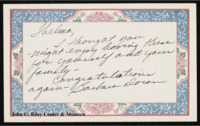 Thelma,
I thought you
might enjoy having these
for yourself and your
family -
Congratulations
again - Barbara Doran
John G. Riley Center & Museum